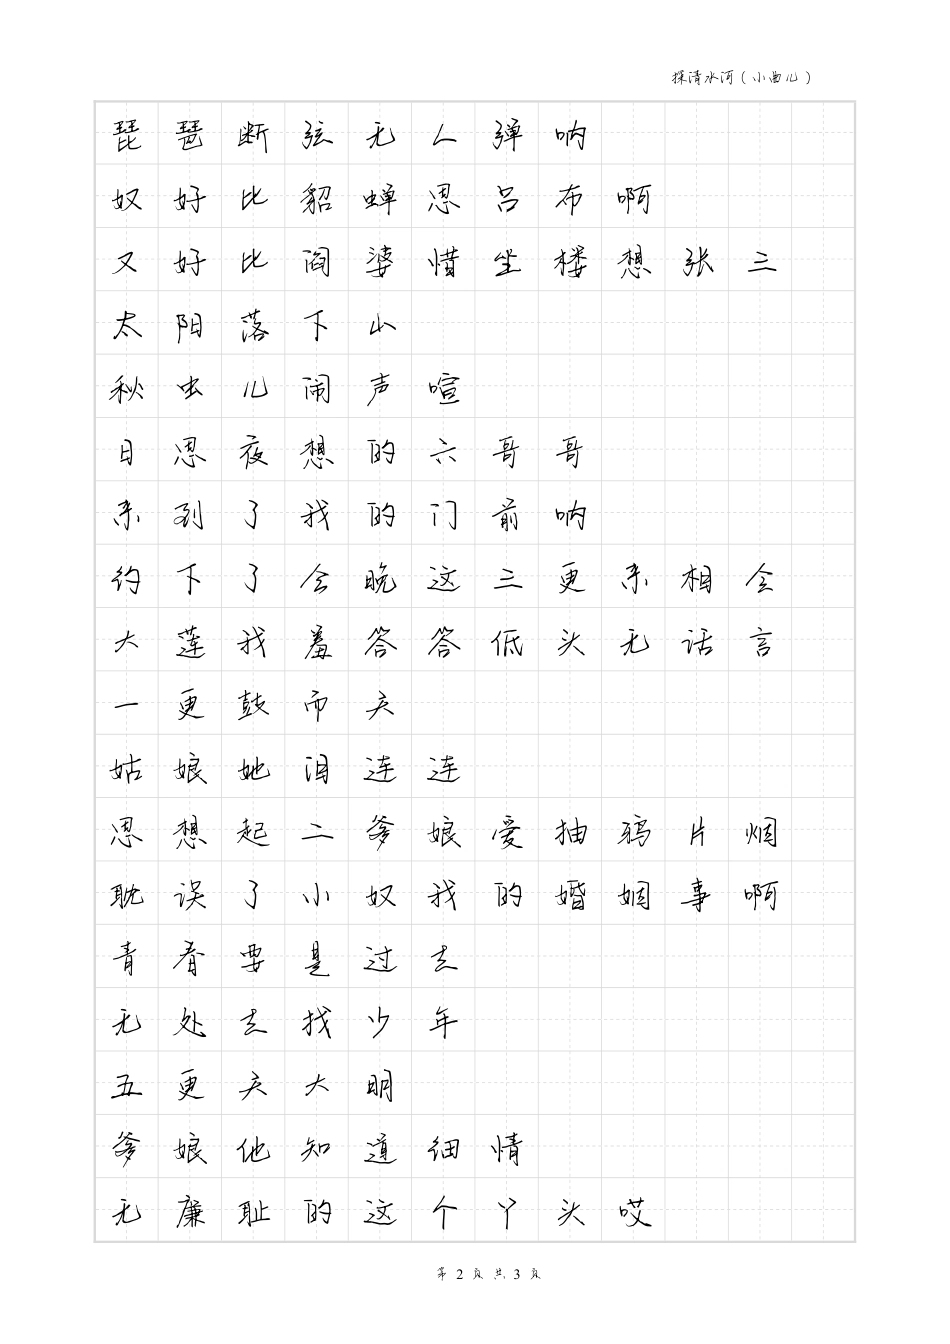 探清水河(小曲儿)
琵琶断弦无人弹呐
奴好比貂蝉思吕布啊
又好比阎婆惜坐楼想张三
太阳落下山
秋虫儿闹声喧
日思夜想的六哥哥
来到了我的门前呐
约下了今晚这三更来相会
大莲我羞答答低头无话言
一更鼓而天
姑娘她泪连连
思想起二爹娘爱抽鸦片烟
耽误了小奴我的婚姻事啊
青春要是过去
无处去找少年
五更天大明
爹娘他知道细情
无廉耻的这个丫头哎
第 2 页 共 3 页